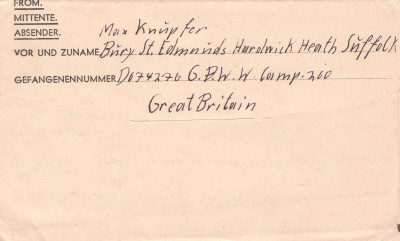 FROM.
MITTENTE.
ABSENDER.
Max Knüpfer
VOR UND ZUNAME Bury St. Edmnuds Hardwick Heath Suffolk
GEFANGENENNUMMER D074276 G.P.W.W. Camp. 260
Great Britain